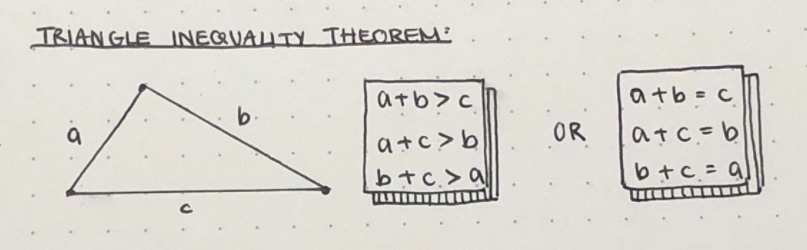 TRIANGLE INEQUALITY THEOREM:
a
b
c
a+b > c
a+c > b
b+c > a
OR
a+b = c
a+c = b
b+c = a